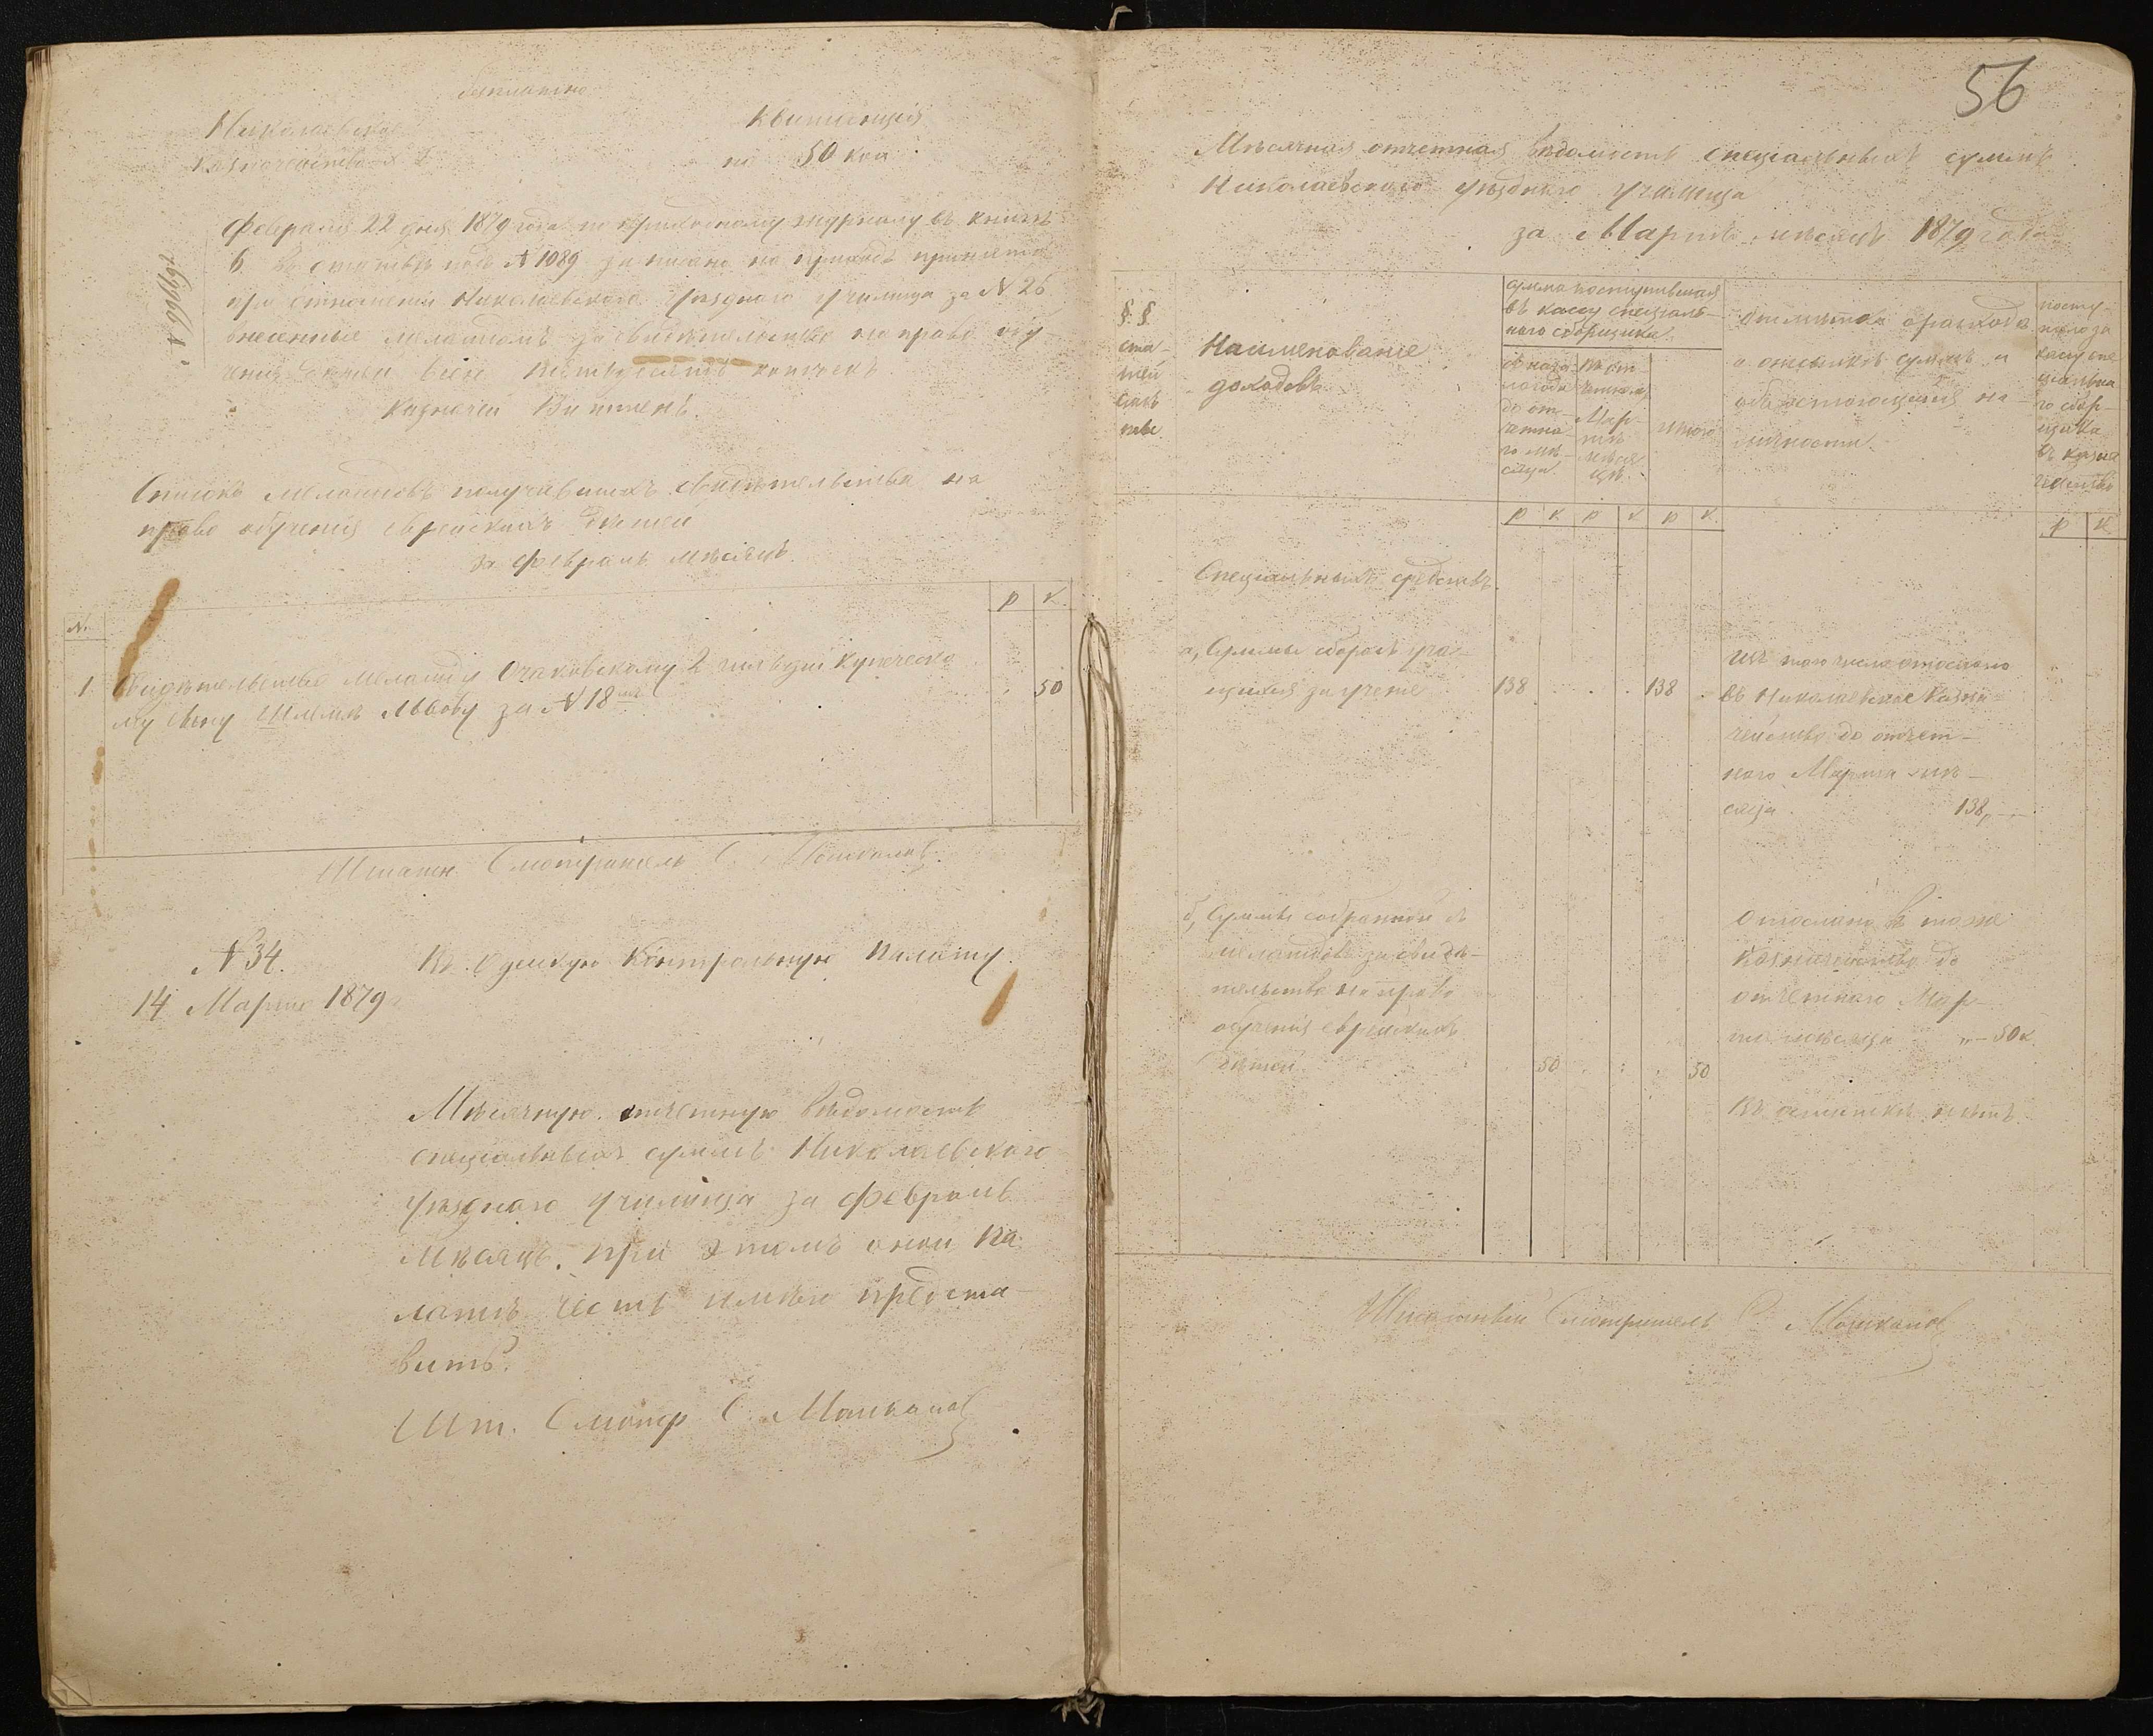 безплатно
Николаевское
Казначейство
Квитанція
на 50 коп
Февраля 22 дня 1879 года по приходному журналу въ книгѣ
6 въ статьѣ подъ № 1089 записано на приходъ принято
при отношеніи Николаевскаго Уѣзднаго Училища за № 26
внесенные меламдомъ за свидѣтельство на право обу-
ченія дѣтей всего пятьдесятъ копѣекъ
Казначей
Списокъ меламдовъ получившихъ свидѣтельства на
право обученія еврейскихъ дѣтей
за Февраль мѣсяцъ.
№ Р К
1 Свидѣтельство меламду Очаковскому 2 гильдіи купеческо
му сыну Шлемѣ Львову за № 18 50
Штатн Смотритель С.
№ 34.
14 Марта 1879
Въ Одесскую Контрольную Палату.
Мѣсячную отчетную вѣдомость
спеціальныхъ суммъ Николаевскаго
Уѣзднаго Училища за Февраль
мѣсяцъ, при этомъ оной Па
латѣ честь имѣю предста-
вить.
Шт. Смотр С.
56
Мѣсячная отчетная вѣдомость спеціальныхъ суммъ
Николаевскаго Уѣзднаго Училища
за Мартъ мѣсяцъ 1879 года
§ §
ста-
тей
смѣ
ты
Наименованіе
доходовъ
Сумма поступившая
въ кассу спеціаль-
наго сборщика
съ нача
ла года
до от
четна
го мѣ-
сяца
Въ от
четном
Мар-
тѣ
мѣся
цѣ.
Итого
Отмѣтка о расходѣ
о отсылкѣ суммъ и
объ остающейся на-
личности.
посту-
пило за
кассу спе
ціальна
го сбор-
щика
въ казна
чейство
Р К Р К Р К Р К
Спеціальныхъ средствъ.
а, Суммы сбора съ уча-
щихся за ученіе 138 138
Изъ того числа отослано
въ Николаевское Казна-
чейство до отчет-
наго Марта мѣ-
сяца 138 „ —
б, Суммы собранной съ
меламдовъ за свидѣ-
тельство на право
обученія еврейскихъ
дѣтей. 50 50
Отослано въ тоже
Казначейство до
отчетнаго Мар-
та мѣсяца „ — 50 к.
Въ остаткѣ нѣтъ.
Штатный Смотритель С.